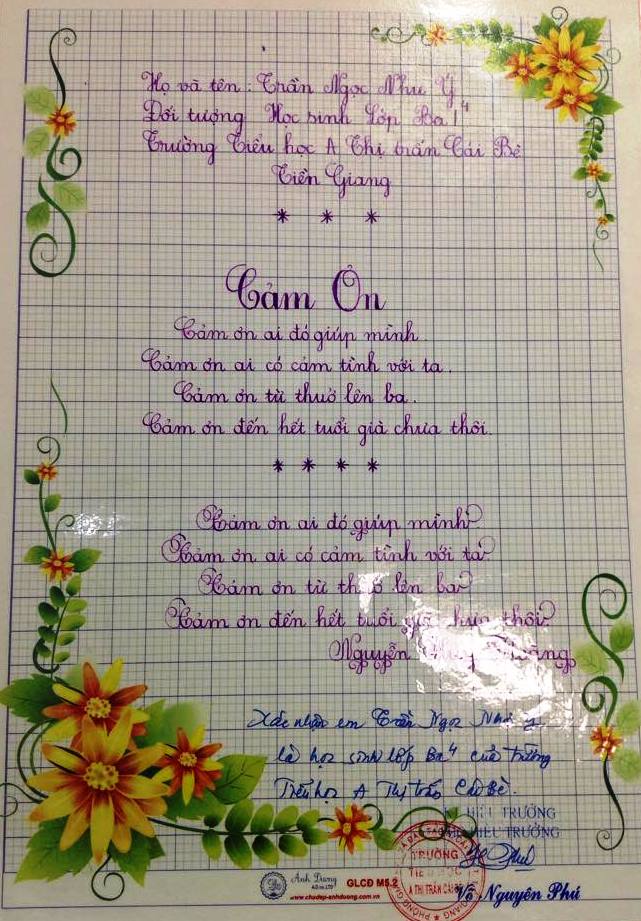 Họ và tên : Trần Ngọc Như Ý
Đối tượng Học sinh Lớp Ba 4
Trường Tiểu học A Thị trấn Cái Bè
Tiền Giang
* * *
Cảm Ơn
Cảm ơn ai đó giúp mình.
Cảm ơn ai có cảm tình với ta.
Cảm ơn từ thuở lên ba.
Cảm ơn đến hết tuổi già chưa thôi.
* * * *
Cảm ơn ai đó giúp mình
Cảm ơn ai có cảm tình với ta
Cảm ơn từ lên ba
Cảm ơn đến hết tuổi già chưa thôi
Nguyễn
Xác nhận em Trần Ngọc Như Ý
là học sinh lớp Ba 4 của trường
Tiểu học A Thị trấn Cái Bè.
HIỆU TRƯỞNG
HIỆU TRƯỞNG
TRƯỜNG
TIỂU HỌC
A THỊ TRẤN CÁI BÈ
Võ Nguyên Phú
Ánh Dương
GLCĐ M5.2
www.chudep-anhduong.com.vn